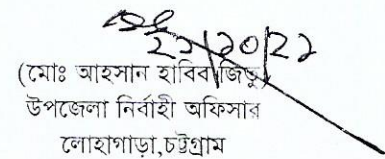 ২১/১০/২১
(মোঃ আহসান হাবিব জিতু)
উপজেলা নির্বাহী অফিসার
লোহাগাড়া,চট্টগ্রাম